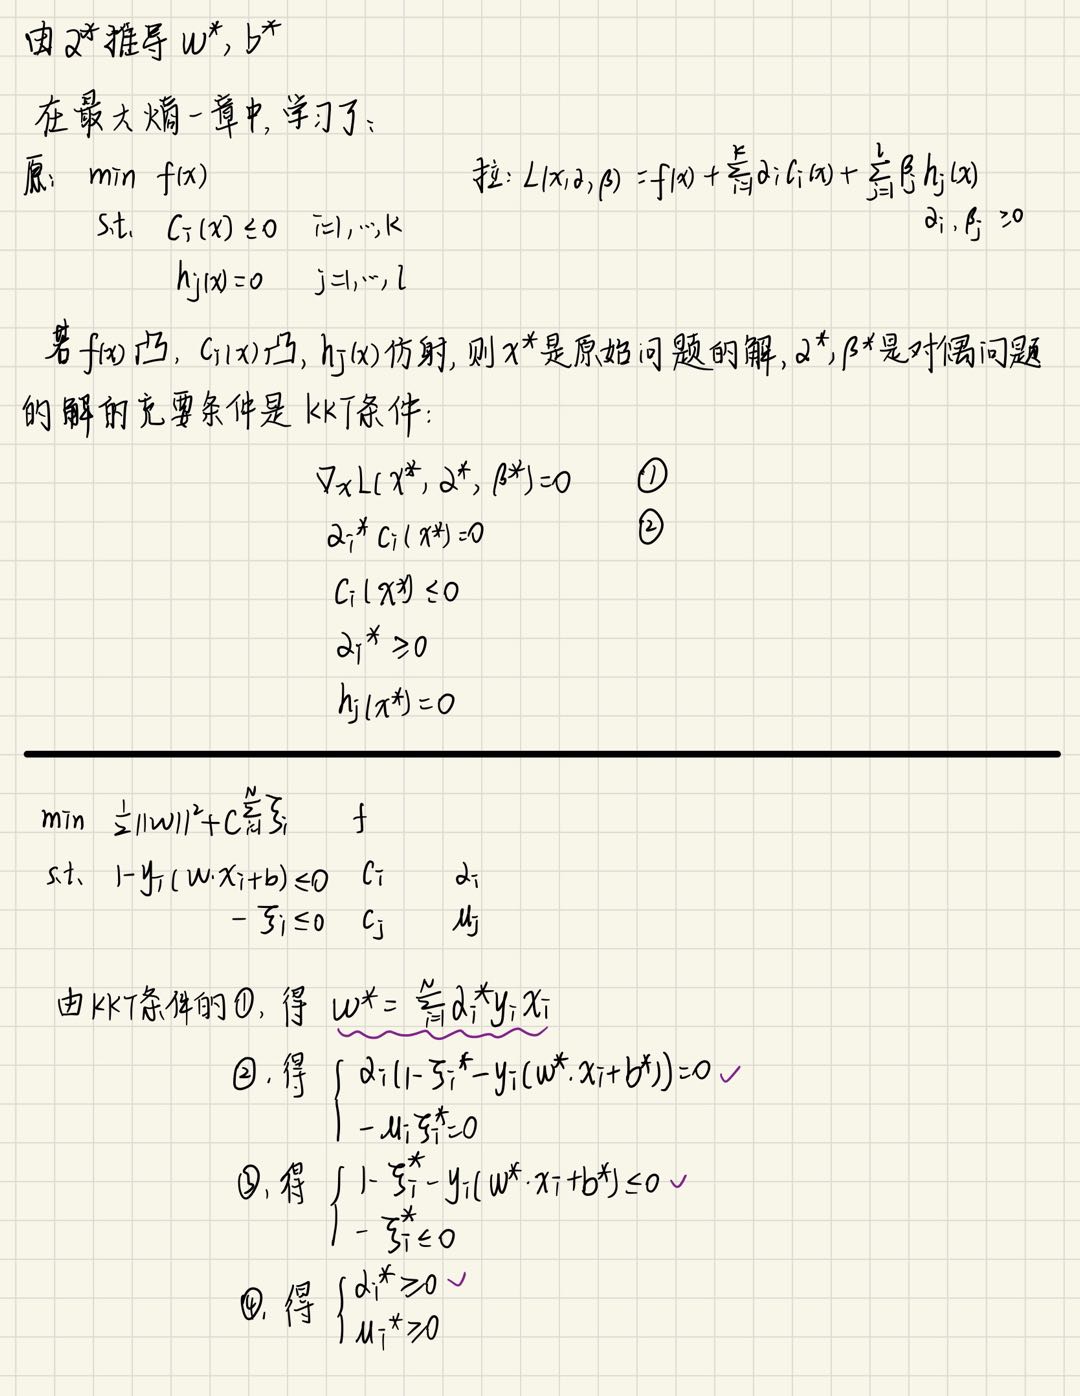 由α*推导 w*, b*
在最大熵一章中, 学习了:
原: min f(x) 拉: L(x,α,β) = f(x) + Σ_{i=1}^{k} α_i c_i(x) + Σ_{j=1}^{l} β_j h_j(x)
s.t. c_i(x) ≤ 0 i=1,…,k α_i, β_j ≥ 0
h_j(x) = 0 j=1,…,l
若 f(x) 凸, c_i(x) 凸, h_j(x) 仿射, 则 x* 是原始问题的解, α*, β* 是对偶问题
的解的充要条件是 KKT条件:
∇_x L(x*, α*, β*) = 0 ①
α_i* c_i(x*) = 0 ②
c_i(x*) ≤ 0
α_i* ≥ 0
h_j(x*) = 0
min 1/2 ||w||² + C Σ_{i=1}^{N} ξ_i f
s.t. 1 - y_i(w·x_i+b) ≤ 0 c_i α_i
- ξ_i ≤ 0 c_j μ_j
由KKT条件的①, 得 w* = Σ_{i=1}^{N} α_i* y_i x_i
②, 得 { α_i(1 - ξ_i* - y_i(w*·x_i+b*)) = 0 ✓
- μ_i ξ_i* = 0
③, 得 { 1 - ξ_i* - y_i(w*·x_i+b*) ≤ 0 ✓
- ξ_i* ≤ 0
④, 得 { α_i* ≥ 0 ✓
μ_i* ≥ 0